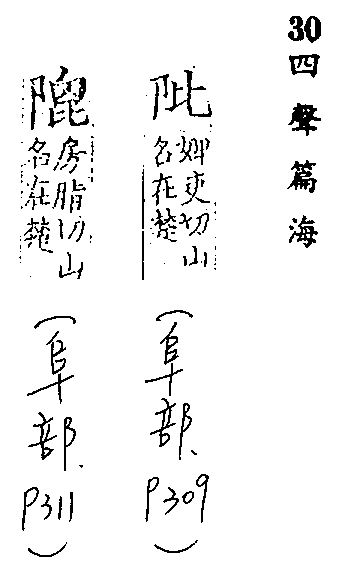 30四聲篇海
阰
婢吏切山
名在楚
(阜部、P309)
房脂切山
名在楚
(阜部、P311)